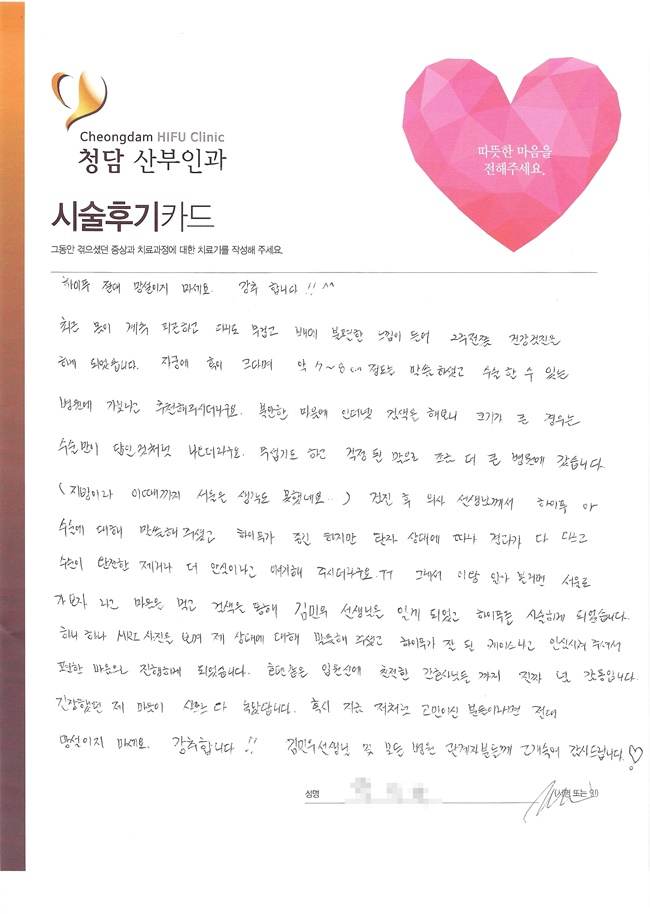 Cheongdam HIFU Clinic
청담 산부인과
따뜻한 마음을
전해주세요.
시술후기카드
그동안 겪으셨던 증상과 치료과정에 대한 치료기를 작성해 주세요.
하이푸 절대 망설이지 마세요. 강추 합니다!! ^^
최근 몸이 계속 피곤하고 다리도 무겁고 배에 불편한 느낌이 들어 2주전쯤 건강검진을
하게 되었습니다. 자궁에 혹이 크다며 약 7~8cm 정도라 말씀하셨고 수술 할 수 있는
병원에 가보라고 추천해주시더라구요. 불안한 마음에 인터넷 검색을 해보니 크기가 큰 경우는
수술만이 답인것처럼 나오더라구요. 무섭기도 하고 걱정 된 맘으로 조금 더 큰 병원에 갔습니다.
(지방이라 이때까지 서울은 생각도 못했네요..) 검진 후 의사 선생님께서 하이푸 와
수술에 대해 말씀해 주셨고 하이푸가 좋긴 하지만 환자 상태에 따라 결과가 다 다르고
수술이 완전한 제거라 더 안심이라고 얘기해 주시더라구요.ㅠㅠ 그래서 이왕 알아 볼거면 서울로
가보자 라고 마음을 먹고 검색을 통해 김민우 선생님을 알게 되었고 하이푸를 시술하게 되었습니다.
하나 하나 MRI 사진을 보며 제 상태에 대해 말씀해 주셨고 하이푸가 잘 된 케이스라고 안심시켜 주셔서
편한 마음으로 진행하게 되었습니다. 입원실에 친절한 간호사님들 까지 진짜 넘 감동입니다.
긴장했던 제 마음이 사르르 다 녹았답니다. 혹시 지금 저처럼 고민이신 분들이라면 절대
망설이지 마세요. 강추합니다!! 김민우선생님 및 모든 병원 관계자분들께 고개숙여 감사드립니다.♡
성명
(서명 또는 인)